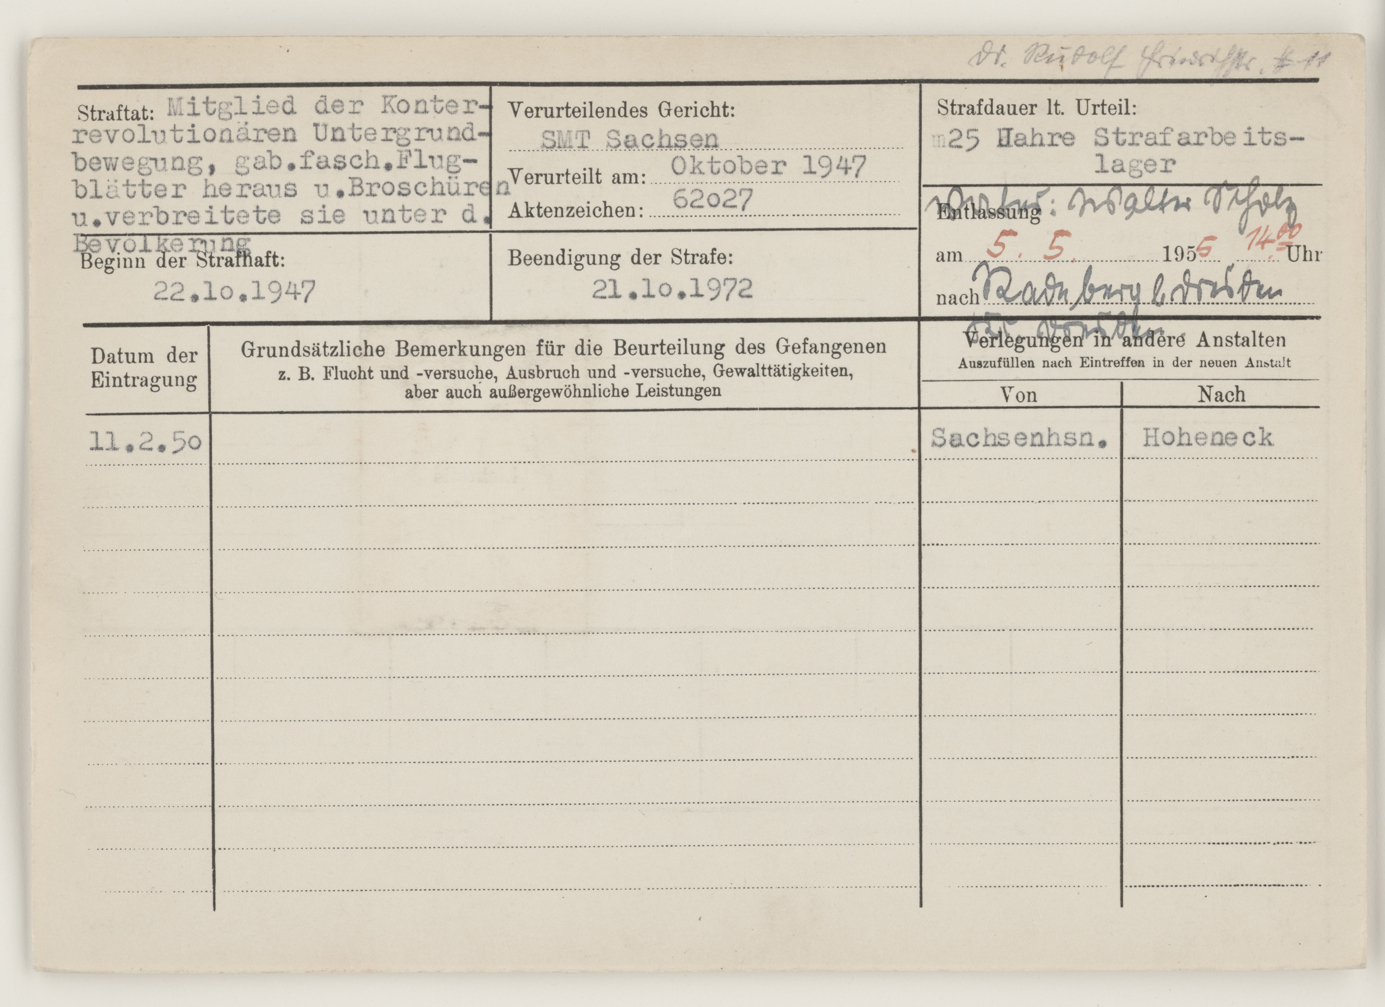 Dr. Rudolf Friedrichstr. 11
Straftat: Mitglied der Konter-
revolutionären Untergrund-
bewegung, gab.fasch.Flug-
blätter heraus u.Broschüren
u.verbreitete sie unter d.
Bevölkerung
Verurteilendes Gericht:
SMT Sachsen
Verurteilt am: Oktober 1947
Aktenzeichen: 62027
Strafdauer lt. Urteil:
25 Hahre Strafarbeits-
lager
Entlassung : Walter Scholz
am 5. 5. 1955 14.00 Uhr
nach Radeberg b. Dresden
Dresden
Beginn der Strafhaft:
22.10.1947
Beendigung der Strafe:
21.10.1972
Datum der
Eintragung
Grundsätzliche Bemerkungen für die Beurteilung des Gefangenen
z. B. Flucht und -versuche, Ausbruch und -versuche, Gewalttätigkeiten,
aber auch außergewöhnliche Leistungen
Verlegungen in andere Anstalten
Auszufüllen nach Eintreffen in der neuen Anstalt
Von Nach
11.2.50 Sachsenhsn. Hoheneck